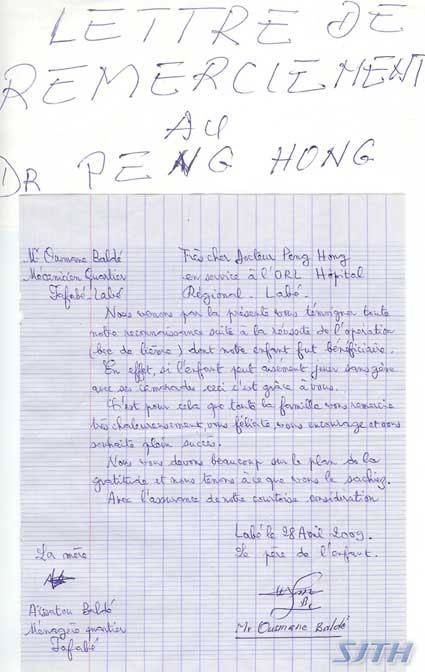 LETTRE DE
REMERCIEMENT
AU
DR PENG HONG
Mr Ousmane Baldé
Mécanicien Quartier
Fafabé-Labé
Très cher Docteur Peng Hong
en service à l'ORL Hôpital
Régional. Labé.
Nous venons par la présente vous témoigner toute
notre reconnaissance suite à la réussite de l'operation
(bec de lièvre) dont notre enfant fut bénéficiaire.
En effet, si l'enfant peut aisement jouer sans gêne
avec ses camarades, ceci c'est grâce à vous.
C'est pour cela que toute la famille vous remercie
très chaleureusement, vous félicite, vous encourage et vous
souhaite plein succès.
Nous vous devons beaucoup sur le plan de la
gratitude et nous tenons à ce que vous le sachiez.
Avec l'assurance de notre courtoise consideration
Labé le 28 Avril 2009.
La mère
Le père de l'enfant.
Aïssatou Baldé
Ménagère quartier
Fafabé
Mr Ousmane Baldé
SJTH